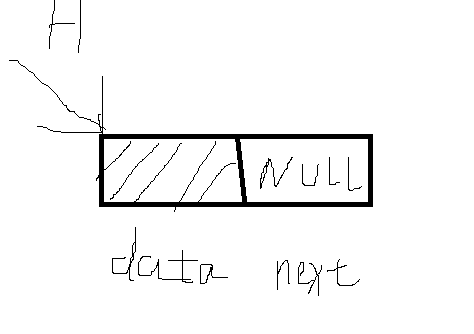 H
NULL
data next